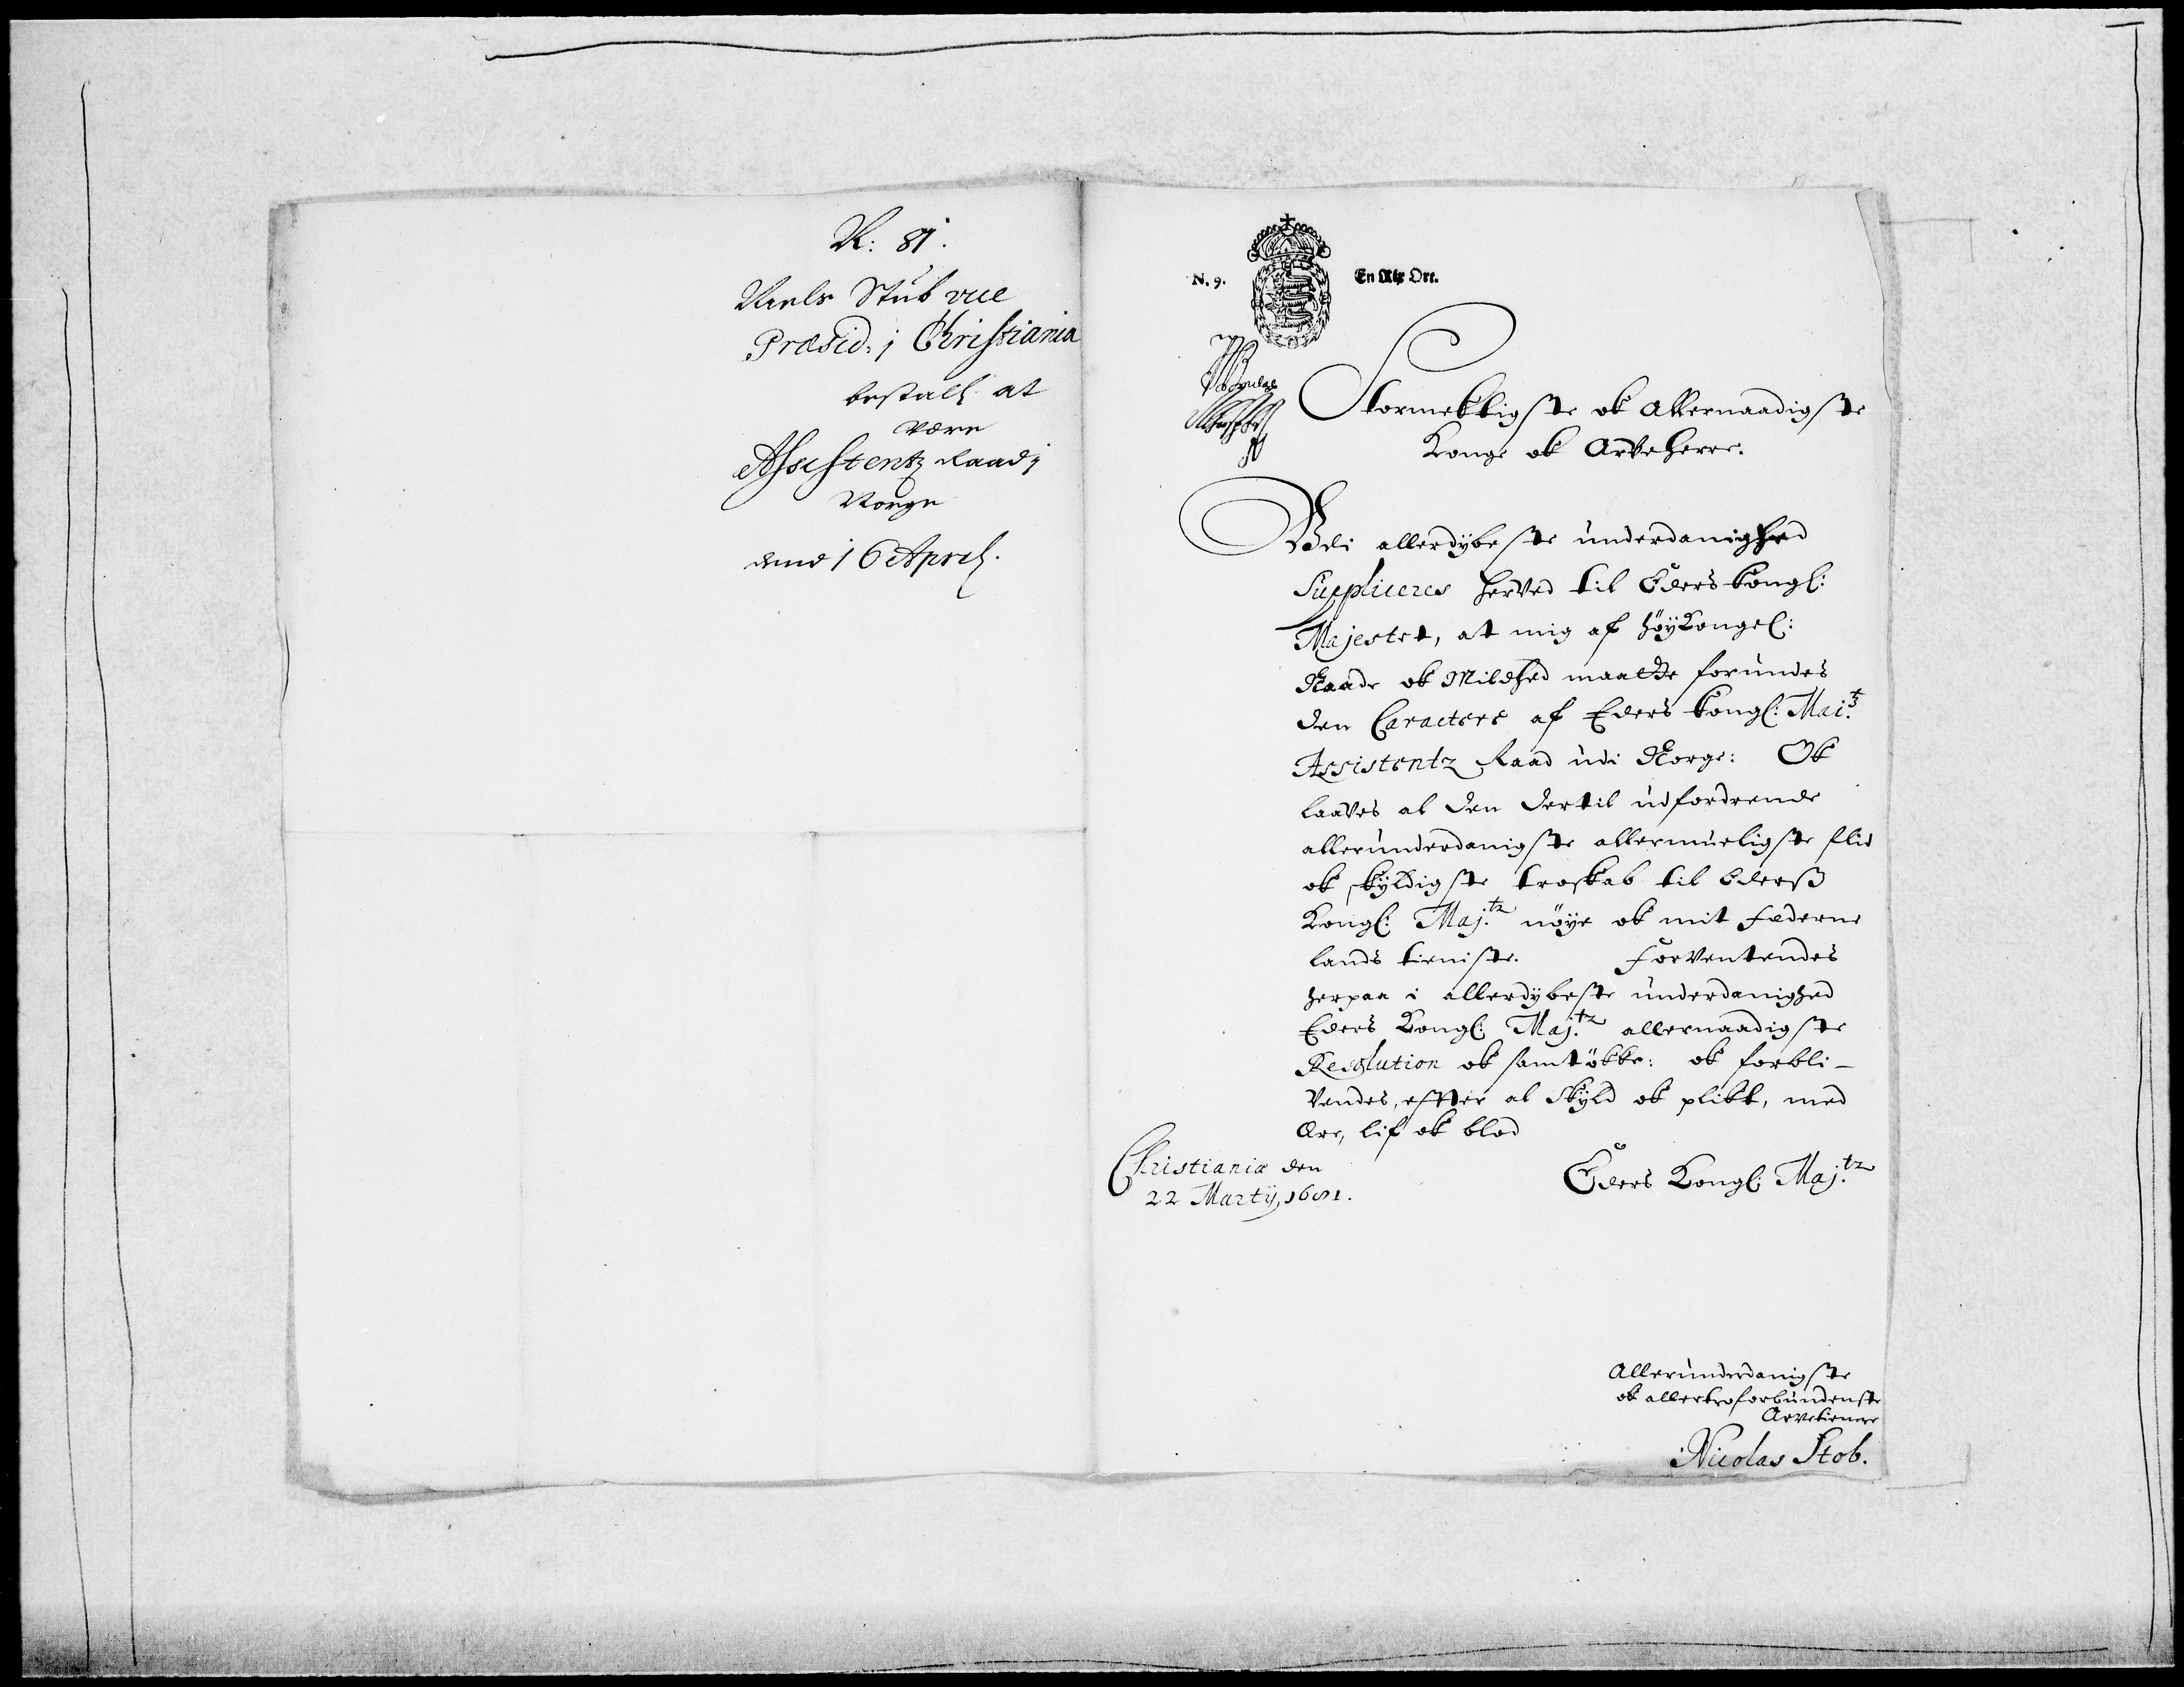 N: 81.
Niels Stub vice
Præsid: i Christiania
bestall: at
være
Assistentz Raad i
Norge
dend 16 April.
N. 9.
En Rix Ort.
Stormektigste ok Allernaadigste
Konge ok Arveherre.
Udi allerdybeste underdanighed
Suppliceres herved til Eders kongl:
Majestet, at mig af høyKongel:
Naade ok Mildhed maatte forundes
den Caractere af Eders kongl: Mai.tz
Assistentz Raad udi Norge: Ok
laaves al den dertil udfordrende
allerunderdanigste allermueligste flid
ok skyldigste troskab til Ederss
Kongl: Maj.tz nöye ok mit Fæderne
lands tieniste. Forventendes
herpaa i allerdybeste underdanighed
Eders Kongl: Maj.tz allernaadigste
Resolution ok samtökke: ok forbli-
vendes, effter al Skyld ok plikt, med
Ære, lif ok blod
Christiania den
22 Martij, 1681.
Eders Kongl: Maj.tz
Allerunderdanigste
ok allertroforbundenste
Arvetienere
Nicolas Stob.